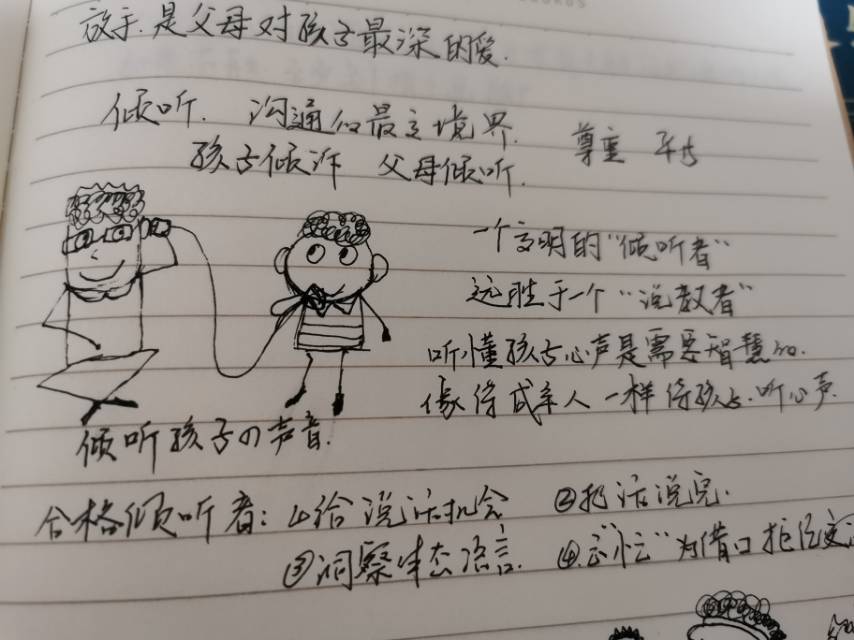 放手.是父母对孩子最深的爱.
倾听. 沟通的最立境界.
尊重 平等
孩子倾诉 父母倾听.
一个文明的“倾听者”
远胜于一个“说教者”
听懂孩子心声是需要智慧的.
像待成年人一样待孩子.听心声
倾听孩子の声音.
合格倾听者:①给说话机会 ②把话说完.
③洞察体态语言. ④ “忙”为借口拒绝交